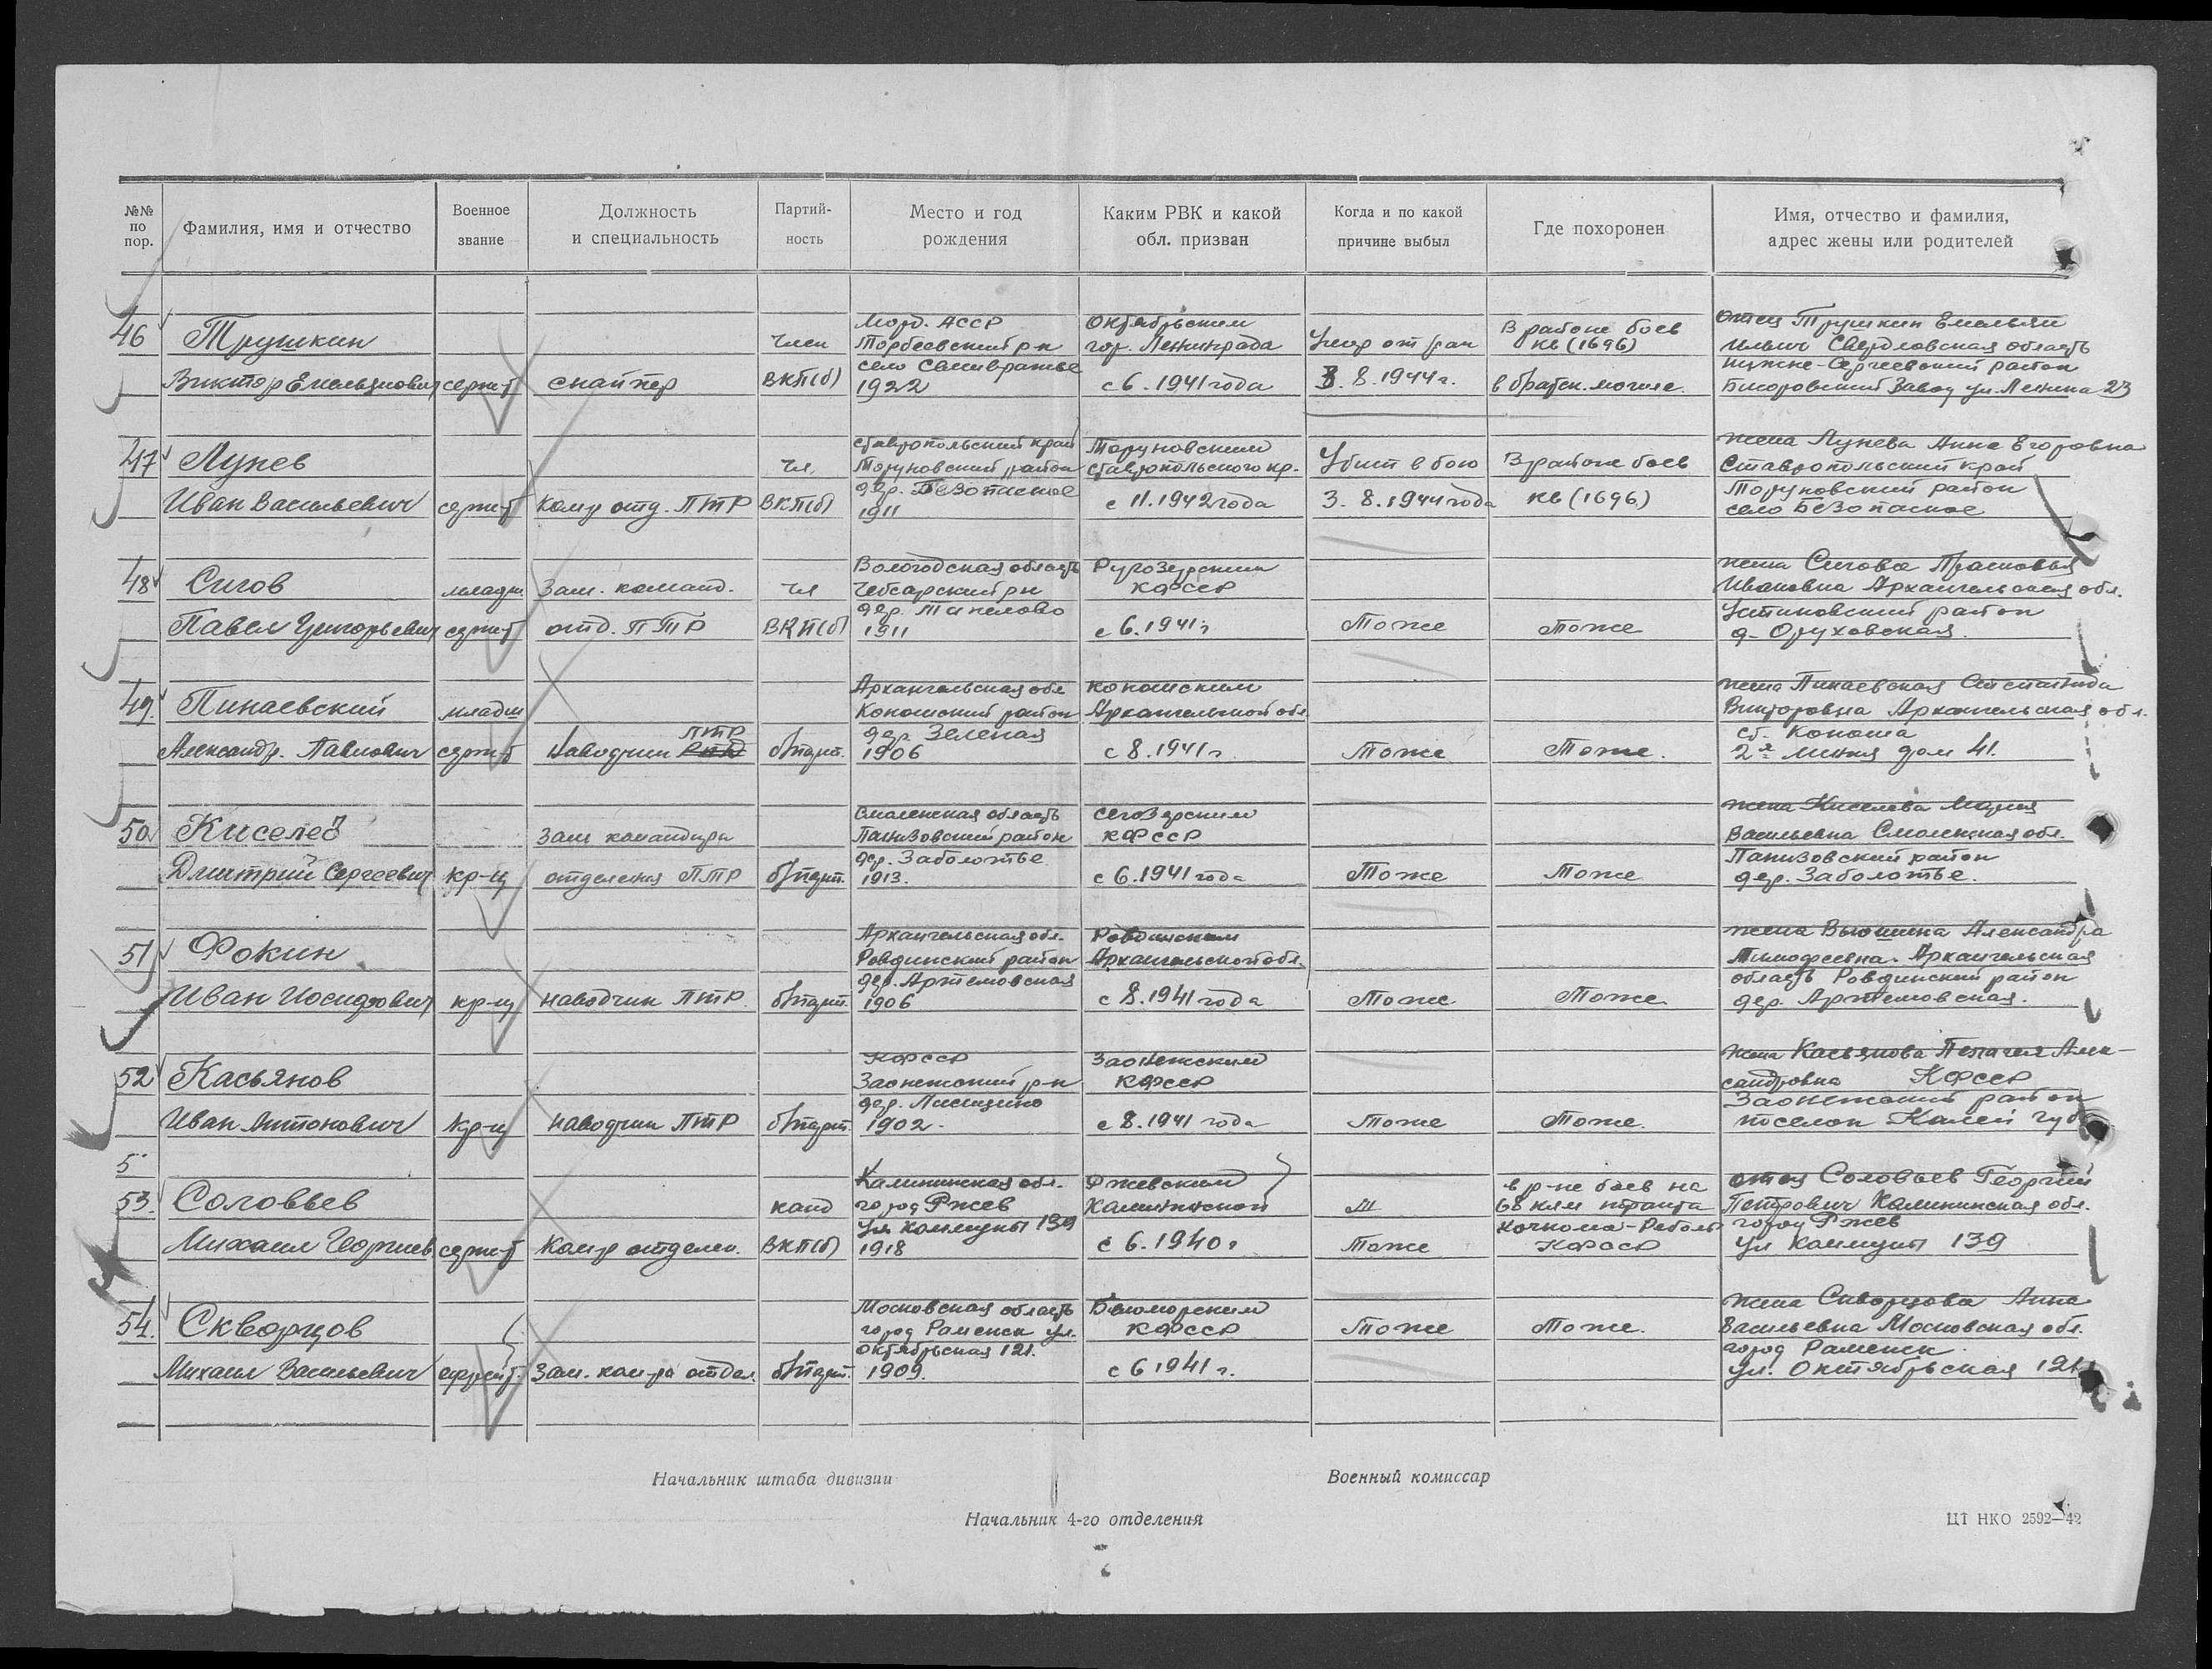 №№ по пор.
Фамилия, имя и отчество
Военное звание
Должность и специальность
Партий-ность
Место и год рождения
Каким РВК и какой обл. призван
Когда и по какой причине выбыл
Где похоронен
Имя, отчество и фамилия, адрес жены или родителей
46 Трушкин
Виктор Емельянович
сержт
снайпер
член
ВКП(б)
Морд. АССР
Торбеевский рн
село
1922
Октябрьским
гор. Ленинграда
с 6. 1941 года
Умер от ран
3. 8. 1944 г.
В районе боев
кв (1696)
в братск. могиле.
отец Трушкин Емельян
Ильич Свердловская область
Нижне-Сергеевский район
Завод ул. Ленина 23
47 Лунев
Иван Васильевич
сержт
Комр отд. ПТР
чл.
ВКП(б)
Ставропольский край
Труновский район
дер. Безопасное
1911
Труновским
Ставропольского кр.
с 11. 1942 года
Убит в бою
3. 8. 1944 года
В районе боев
кв (1696)
жена Лунева Анна Егоровна
Ставропольский край
Труновский район
село Безопасное
48 Сигов
Павел Григорьевич
младш.
сержт
Зам. команд.
отд. ПТР
чл
ВКП(б)
Вологодская область
Чебсарский рн
дер.
1911
Ругозерским
КФССР
с 6. 1941 г
Тоже
Тоже
жена Сигова Прасковья
Ивановна Архангельская обл.
Устьяновский район
д.
49. Пинаевский
Александр. Павлович
младш
сержт
ПТР
Наводчик
б/парт.
Архангельская обл
Коношский район
дер. Зеленая
1906
Коношским
Архангельской обл.
с 8. 1941 г.
Тоже
Тоже.
жена Пинаевская Степанида
Викторовна Архангельская обл.
ст. Коноша
2я линия дом 41.
50 Киселев
Дмитрий Сергеевич
кр-ц
Зам командира
отделения ПТР
б/парт.
Смоленская область
район
дер. Заболотье
1913.
Сегозерским
КФССР
с 6. 1941 года
Тоже
Тоже
жена Киселева Мария
Васильевна Смоленская обл.
район
дер. Заболотье.
51 Фокин
Иван Иосифович
кр-ц
Наводчик ПТР.
б/парт.
Архангельская обл.
Ровдинский район
дер. Артемовская
1906
Ровдинским
Архангельской обл.
с 8. 1941 года
Тоже
Тоже
жена Вьюшина Александра
Тимофеевна. Архангельская
область Ровдинский район
дер. Артемовская.
52 Касьянов
Иван Антонович
кр-ц
Наводчик ПТР
б/парт
КФССР
Заонежский р-н
дер.
1902.
Заонежским
КФССР
с 8. 1941 года
Тоже
Тоже.
жена Касьянова Пелагея Алек-
сандровна КФССР
Заонежский район
поселок
5
53. Соловьев
Михаил Георгиев
сержт
Комр отделен.
канд
ВКП(б)
Калининская обл.
город Ржев
ул Коммуны 139
1918
Ржевским
Калининской
с 6. 1940 г
Тоже
в р-не боев на
68 клм тракта
Кочкома-Реболы
КФССР
отец Соловьев Георгий
Петрович Калининская обл.
город Ржев
ул Коммуны 139
54. Скворцов
Михаил Васильевич
ефрейт.
Зам. ком-ра отдел.
б/парт.
Московская область
город Раменск ул.
Октябрьская 121.
1909.
Беломорским
КФССР
с 6 1941 г.
Тоже
Тоже.
жена Скворцова Анна
Васильевна Московская обл.
город Раменск.
ул. Октябрьская 121
Начальник штаба дивизии
Военный комиссар
Начальник 4-го отделения
ЦТ НКО 2592—42